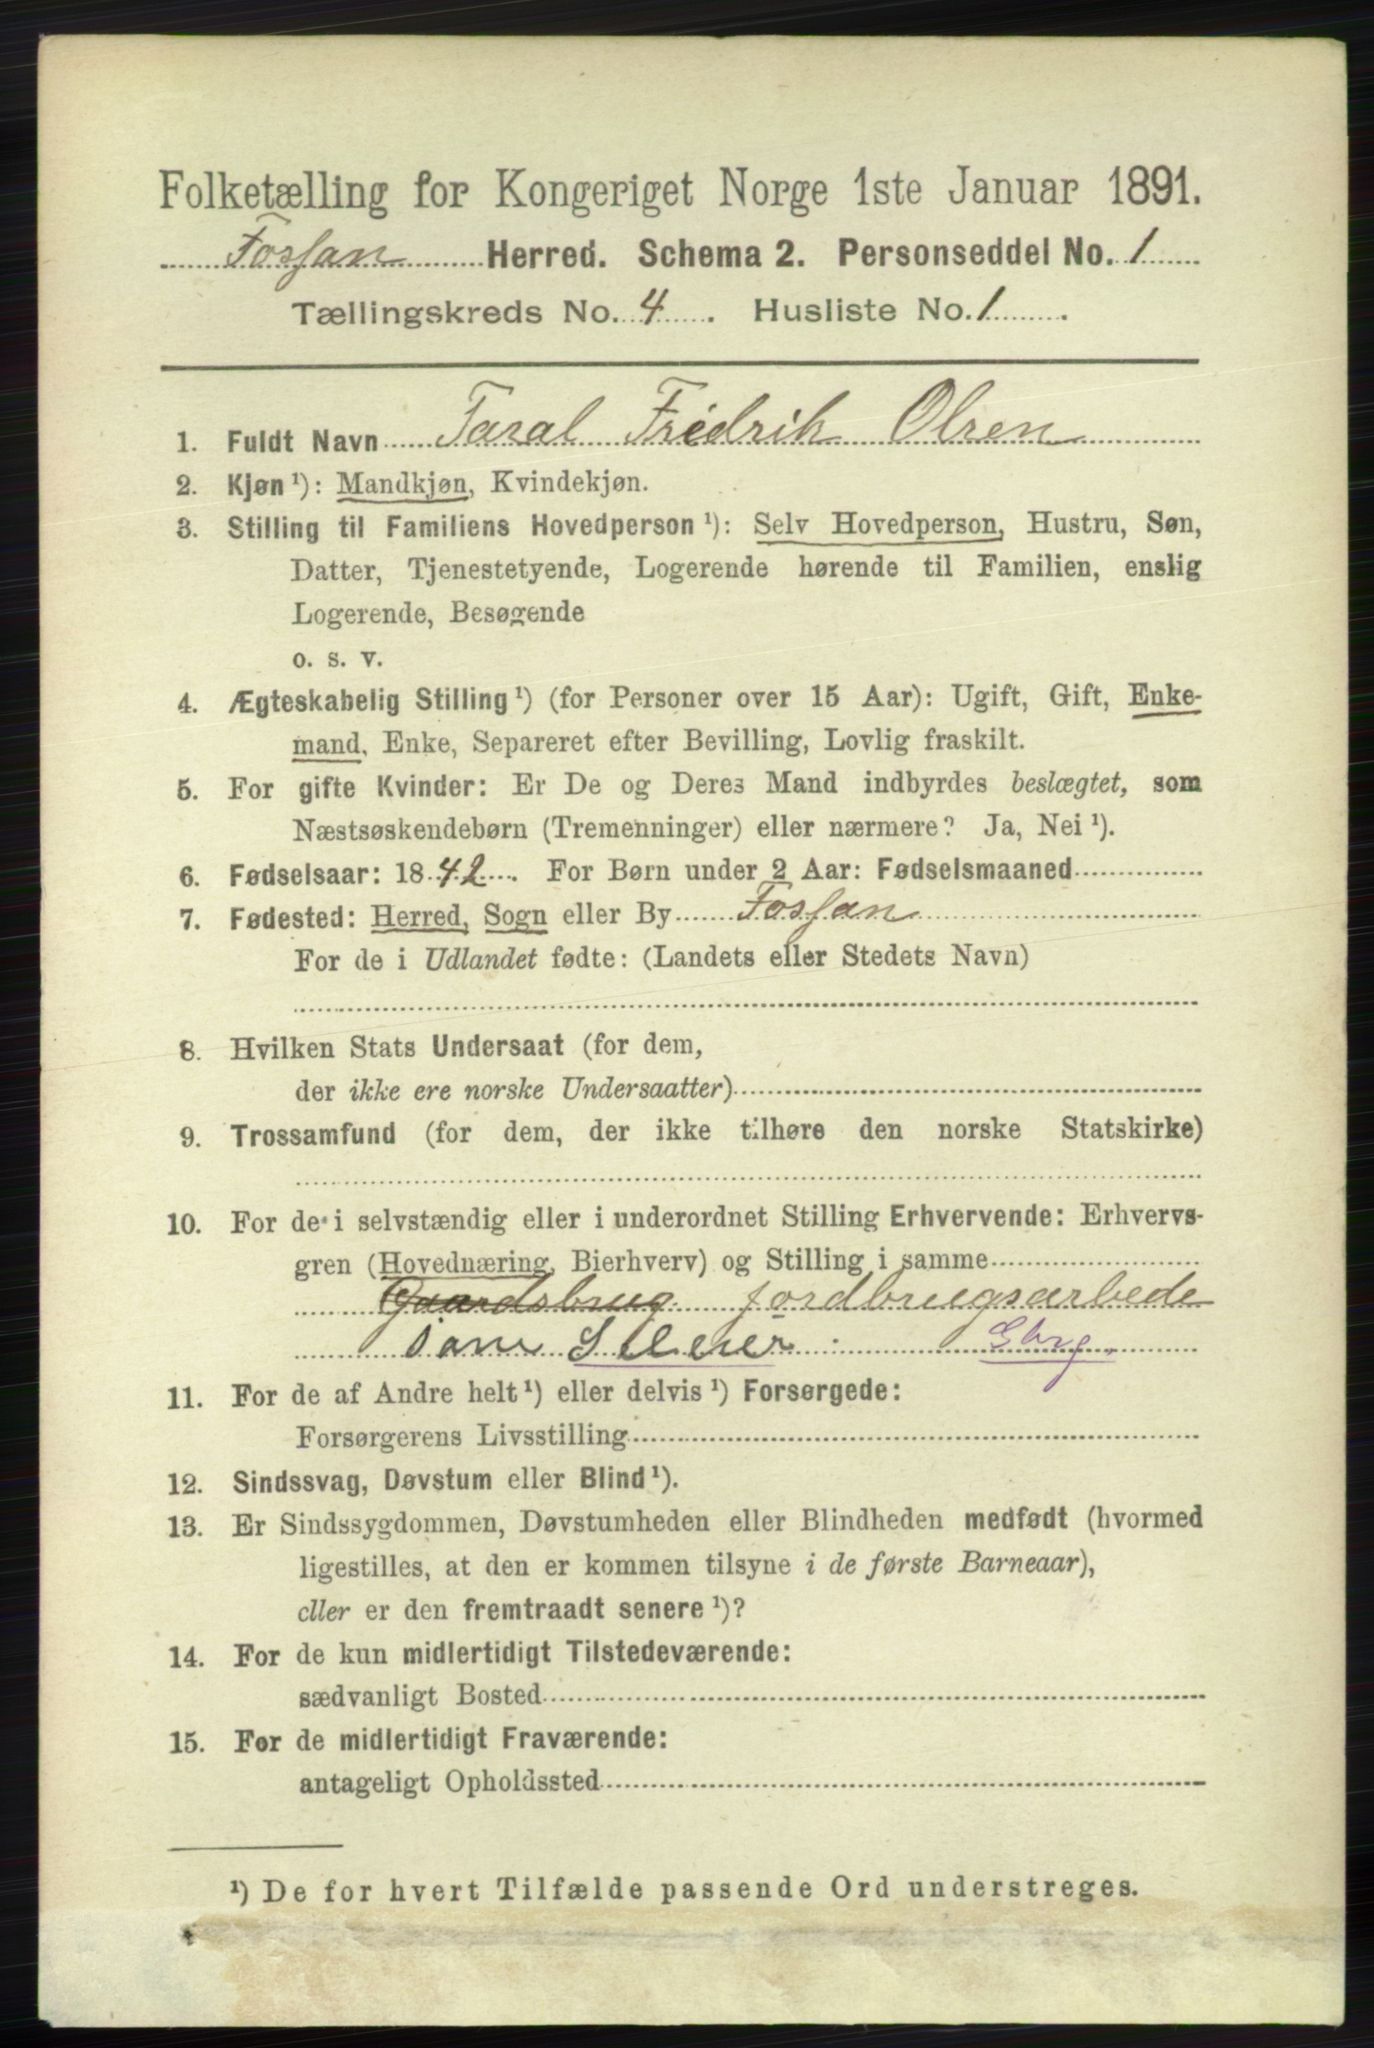 Folketælling for Kongeriget Norge 1ste Januar 1891.
Fossan Herred. Schema 2. Personseddel No. 1
Tællingskreds No. 4. Husliste No. 1.
1. Fuldt Navn Taral Fredrik Olsen
2. Kjøn ¹): Mandkjøn, Kvindekjøn.
3. Stilling til Familiens Hovedperson ¹): Selv Hovedperson, Hustru, Søn,
Datter, Tjenestetyende, Logerende hørende til Familien, enslig
Logerende, Besøgende
o. s. v.
4. Ægteskabelig Stilling ¹) (for Personer over 15 Aar): Ugift, Gift, Enke-
mand, Enke, Separeret efter Bevilling, Lovlig fraskilt.
5. For gifte Kvinder: Er De og Deres Mand indbyrdes beslægtet, som
Næstsøskendebørn (Tremenninger) eller nærmere? Ja, Nei ¹).
6. Fødselsaar: 1842. For Børn under 2 Aar: Fødselsmaaned
7. Fødested: Herred, Sogn eller By Fossan
For de i Udlandet fødte: (Landets eller Stedets Navn)
8. Hvilken Stats Undersaat (for dem,
der ikke ere norske Undersaatter)
9. Trossamfund (for dem, der ikke tilhøre den norske Statskirke)
10. For de i selvstændig eller i underordnet Stilling Erhvervende: Erhvervs-
gren (Hovednæring, Bierhverv) og Stilling i samme
Gaardsbrug jordbrugsarbede
som Sleier Gbrg.
11. For de af Andre helt ¹) eller delvis ¹) Forsørgede:
Forsørgerens Livsstilling
12. Sindssvag, Døvstum eller Blind ¹).
13. Er Sindssygdommen, Døvstumheden eller Blindheden medfødt (hvormed
ligestilles, at den er kommen tilsyne i de første Barneaar),
eller er den fremtraadt senere ¹)?
14. For de kun midlertidigt Tilstedeværende:
sædvanligt Bosted
15. For de midlertidigt Fraværende:
antageligt Opholdssted
¹) De for hvert Tilfælde passende Ord understreges.